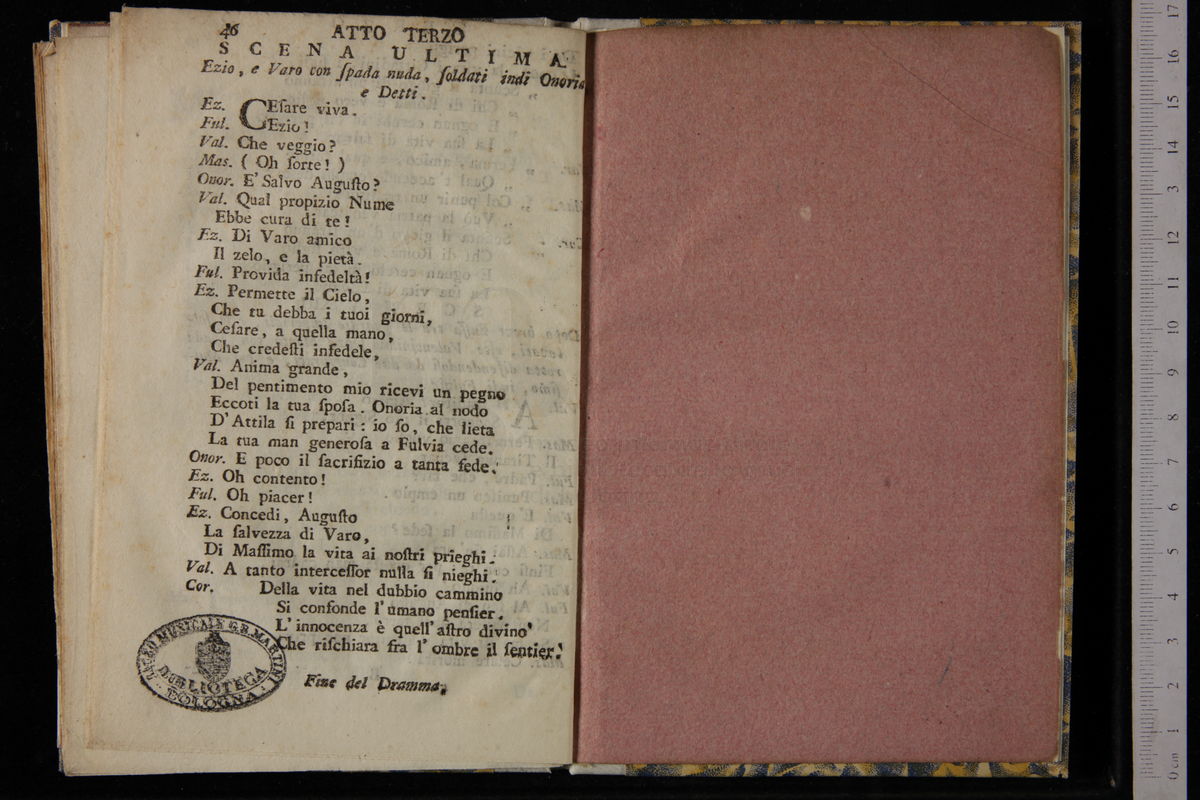 46 ATTO TERZO
SCENA ULTIMA
Ezio, e Varo con ſpada nuda, ſoldati indi Onoria
e Detti.
Ez. CEſare viva.
Ful. Ezio!
Val. Che veggio?
Mas. ( Oh ſorte! )
Onor. E' Salvo Auguſto?
Val. Qual propizio Nume
Ebbe cura di te!
Ez. Di Varo amico
Il zelo, e la pietà.
Ful. Provida infedeltà!
Ez. Permette il Cielo,
Che tu debba i tuoi giorni,
Ceſare, a quella mano,
Che credeſti infedele,
Val. Anima grande,
Del pentimento mio ricevi un pegno
Eccoti la tua ſpoſa. Onoria al nodo
D'Attila ſi prepari: io ſo, che lieta
La tua man generoſa a Fulvia cede.
Onor. E poco il ſacrifizio a tanta fede.
Ez. Oh contento!
Ful. Oh piacer!
Ez. Concedi, Auguſto
La ſalvezza di Varo,
Di Maſſimo la vita ai noſtri prieghi.
Val. A tanto interceſſor nulla ſi nieghi.
Cor. Della vita nel dubbio cammino
Si confonde l'umano penſier.
L'innocenza è quell'aſtro divino
Che riſchiara fra l'ombre il ſentier.
Fine del Dramma.
LICEO MUSICALE G.B. MARTINI
BIBLIOTECA
BOLOGNA
0 cm 1 2 3 4 5 6 7 8 9 10 11 12 13 14 15 16 17